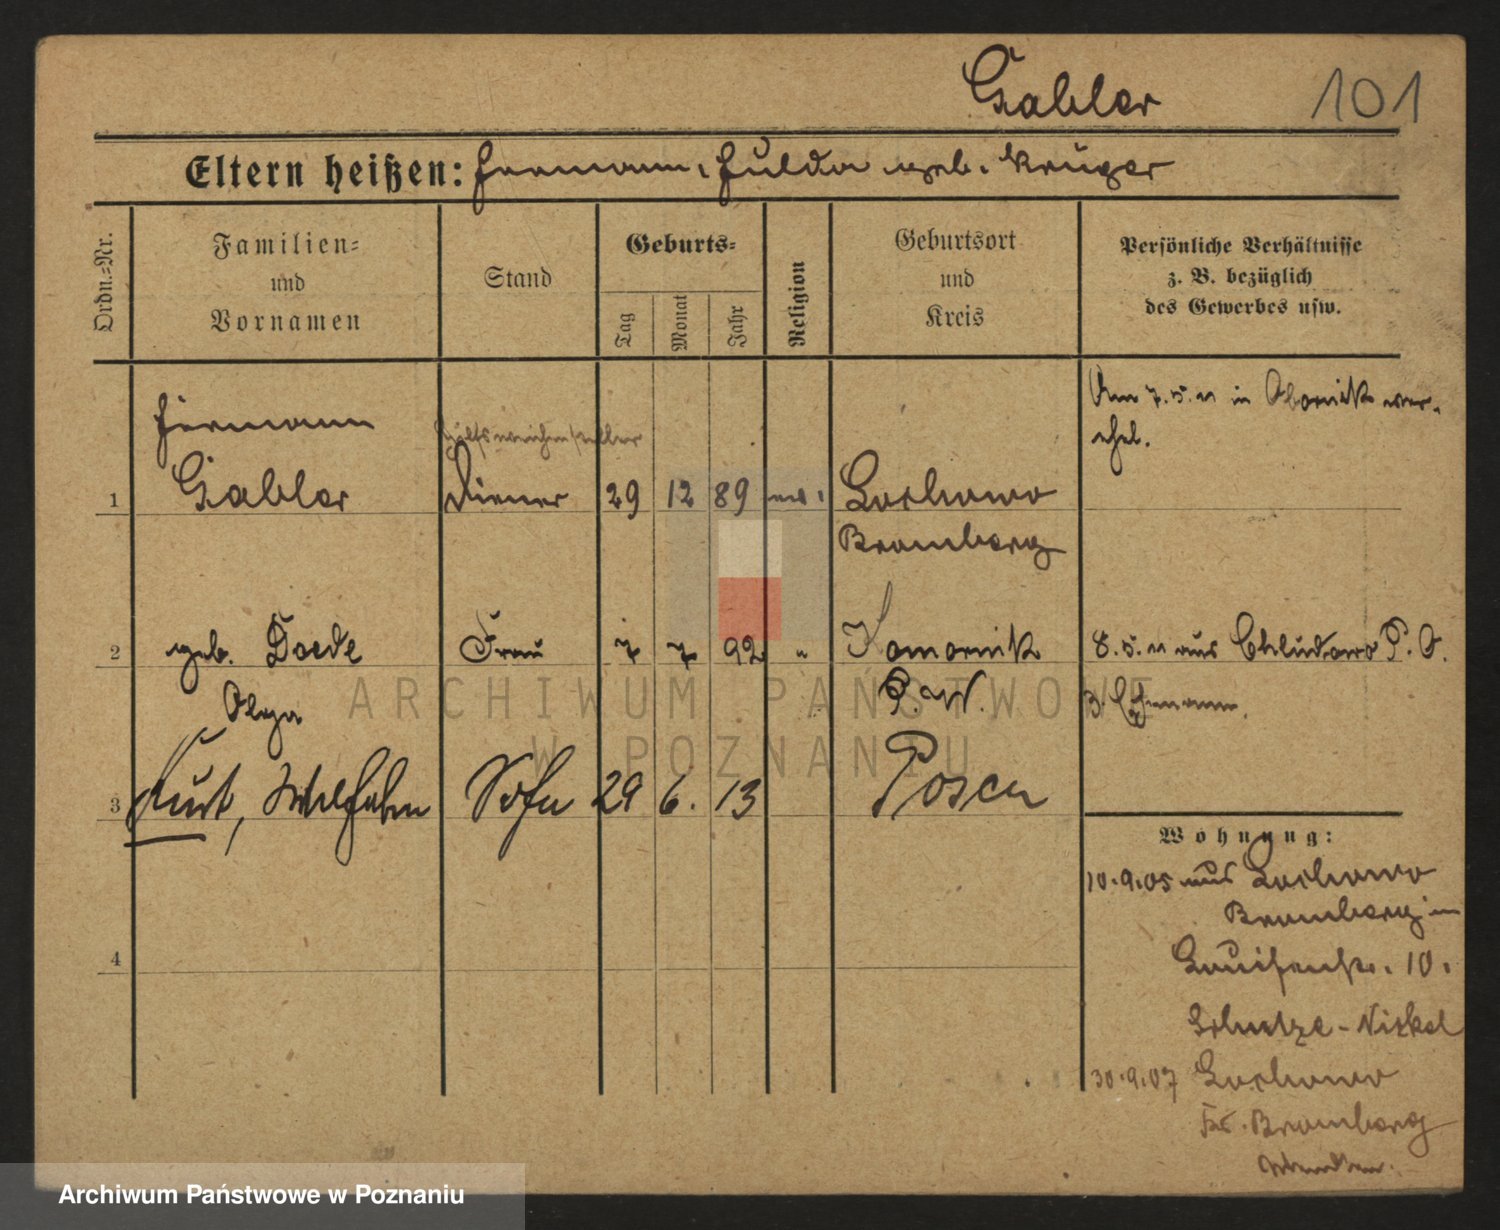 Gabler 101
Eltern heißen: Hermann, Hulda geb. Krüger
Ordn.=Nr.
Familien=
und
Vornamen
Stand
Geburts=
Tag
Monat
Jahr
Religion
Geburtsort
und
Kreis
Persönliche Verhältnisse
z. B. bezüglich
des Gewerbes usw.
Am 7.5.11 in Obornik ver-
ehel.
Hermann
Hülfsweichensteller
1 Gabler Diener 29 12 89 ev. Lochowo
Bromberg
2 geb. Doede Frau 7 7 92 " Komornik 8.5.11 aus Chludowo P. O.
Olga P. W. z. Ehemann.
3 Kurt, Wilhelm Sohn 29 6. 13 Posen
4
Wohnung:
10.9.05 aus Lochowo
Bromberg in
Louisenstr. 10.
30.9.07 Lochowo
Kr. Bromberg
ARCHIWUM PAŃSTWOWE
W POZNANIU
Archiwum Państwowe w Poznaniu